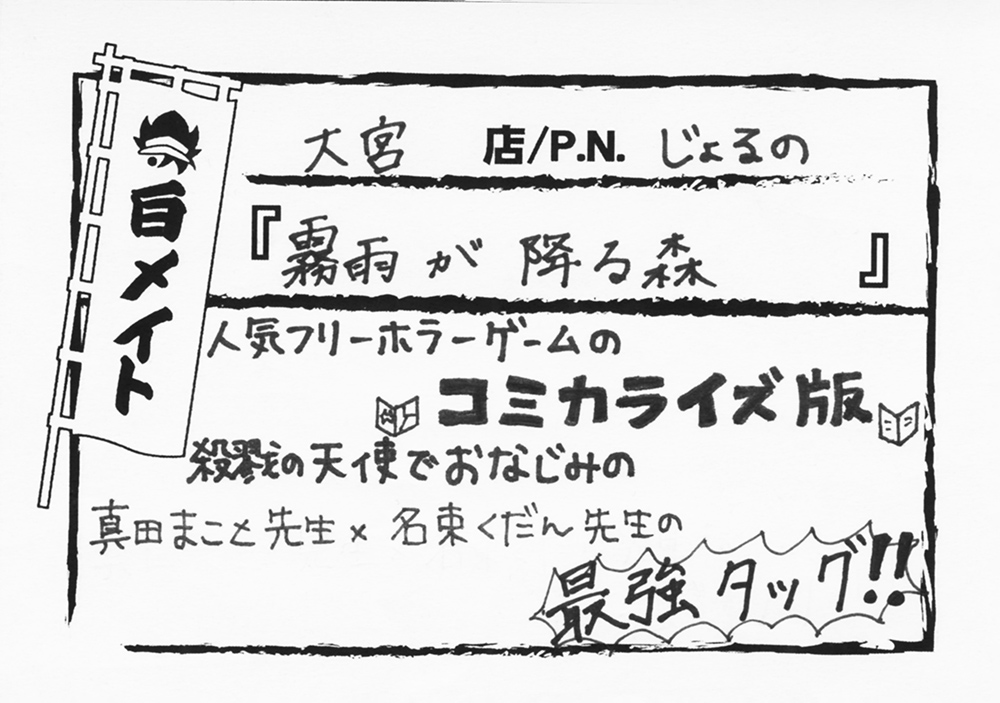 目メイト
大宮 店/P.N. じょるの
『霧雨が降る森』
人気フリーホラーゲームの
コミカライズ版
殺戮の天使でおなじみの
真田まこと先生×名束くだん先生の
最強タッグ!!